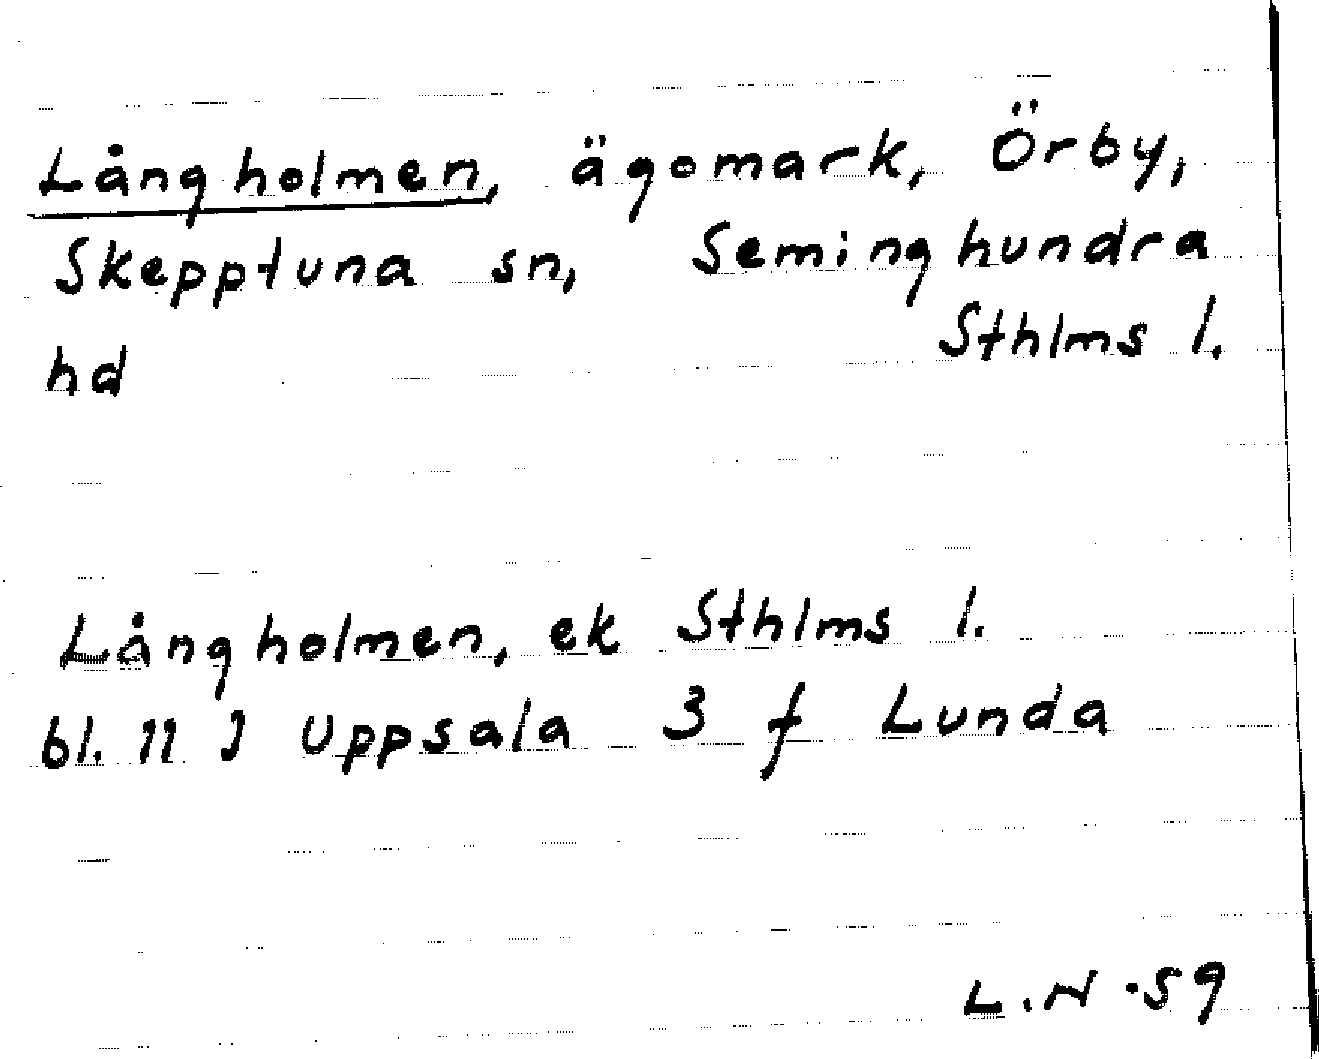 Långholmen, ägomark, Örby,
Skepptuna sn, Seminghundra
hd Sthlms l.
Långholmen, ek Sthlms l.
bl. 11 J Uppsala 3 f Lunda
L.N -59